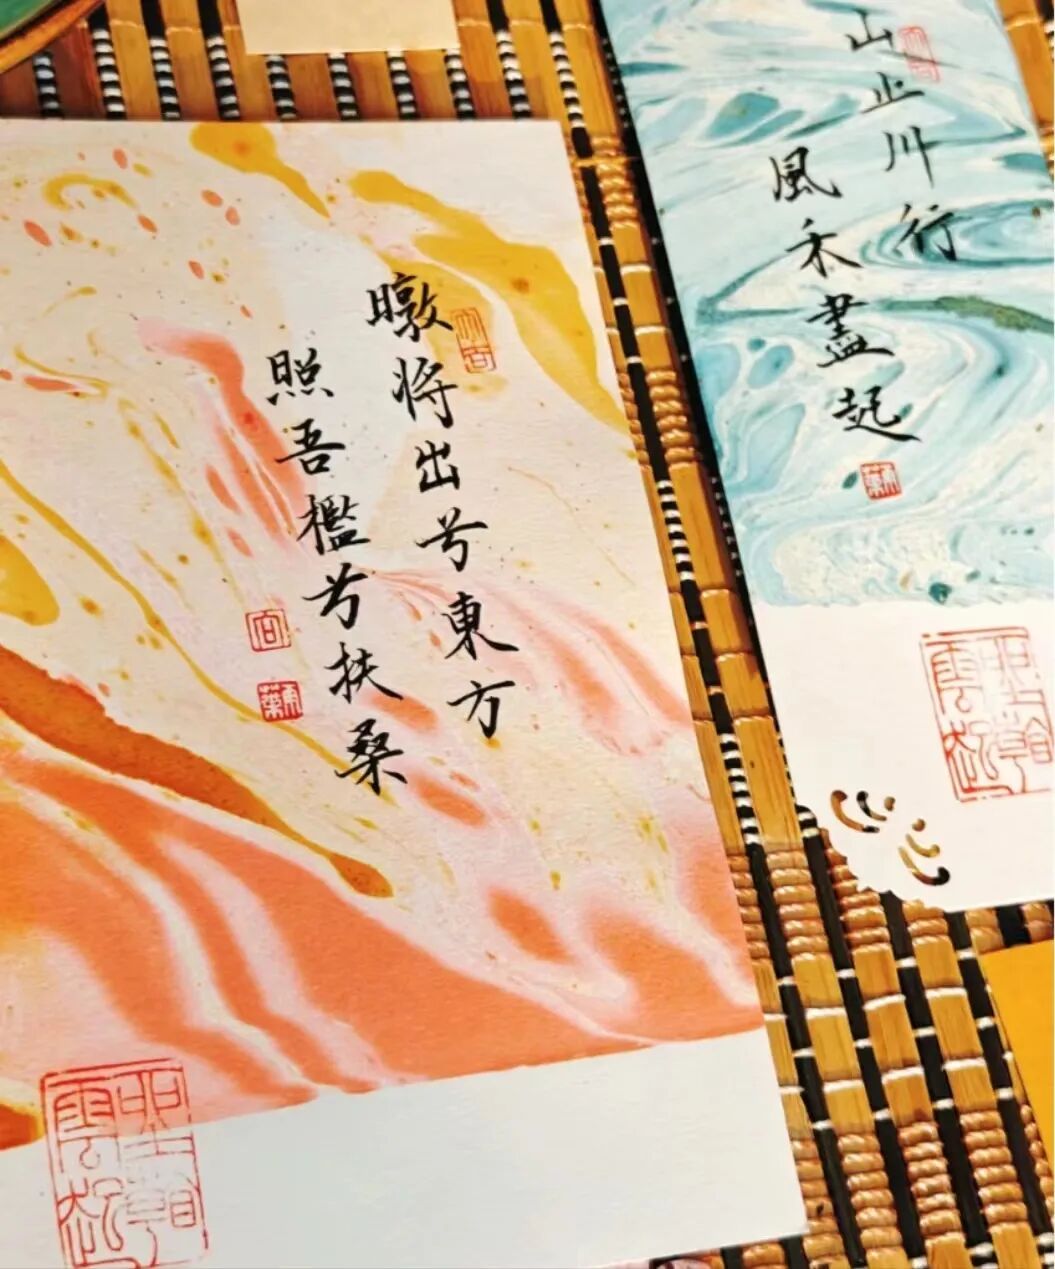 暾将出兮東方
照吾檻兮扶桑
山止川行
風禾盡起